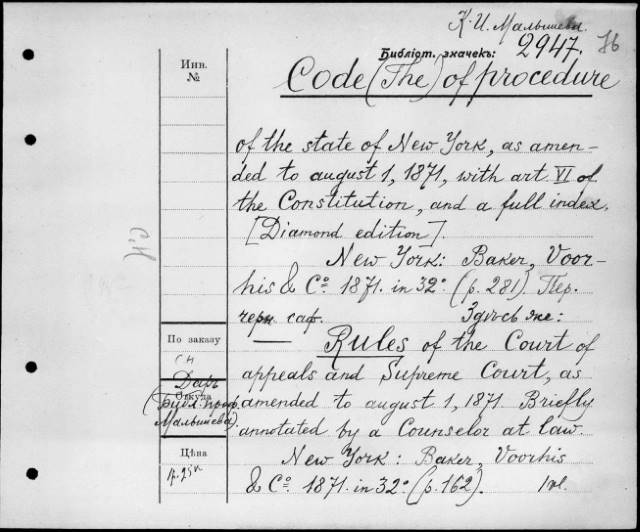 К. И. Малышева.
Библіот. значекъ: 2947.
Инв.
№
Code (The) of procedure
of the state of New York, as amen-
ded to august 1, 1871, with art. VI of
the Constitution, and a full index.
[Diamond edition].
New York: Baker, Voor-
his & Cº 1871. in 32º (p. 281). Пер.
черн. саф. Здѣсь же:
— Rules of the Court of
appeals and Supreme Court, as
amended to august 1, 1871. Briefly
annotated by a Counselor at law.
New York: Baker, Voorhis
& Cº 1871. in 32º (p. 162). 1 vol.
По заказу
СН
Даръ
Откуда
Малышева).
Цѣна